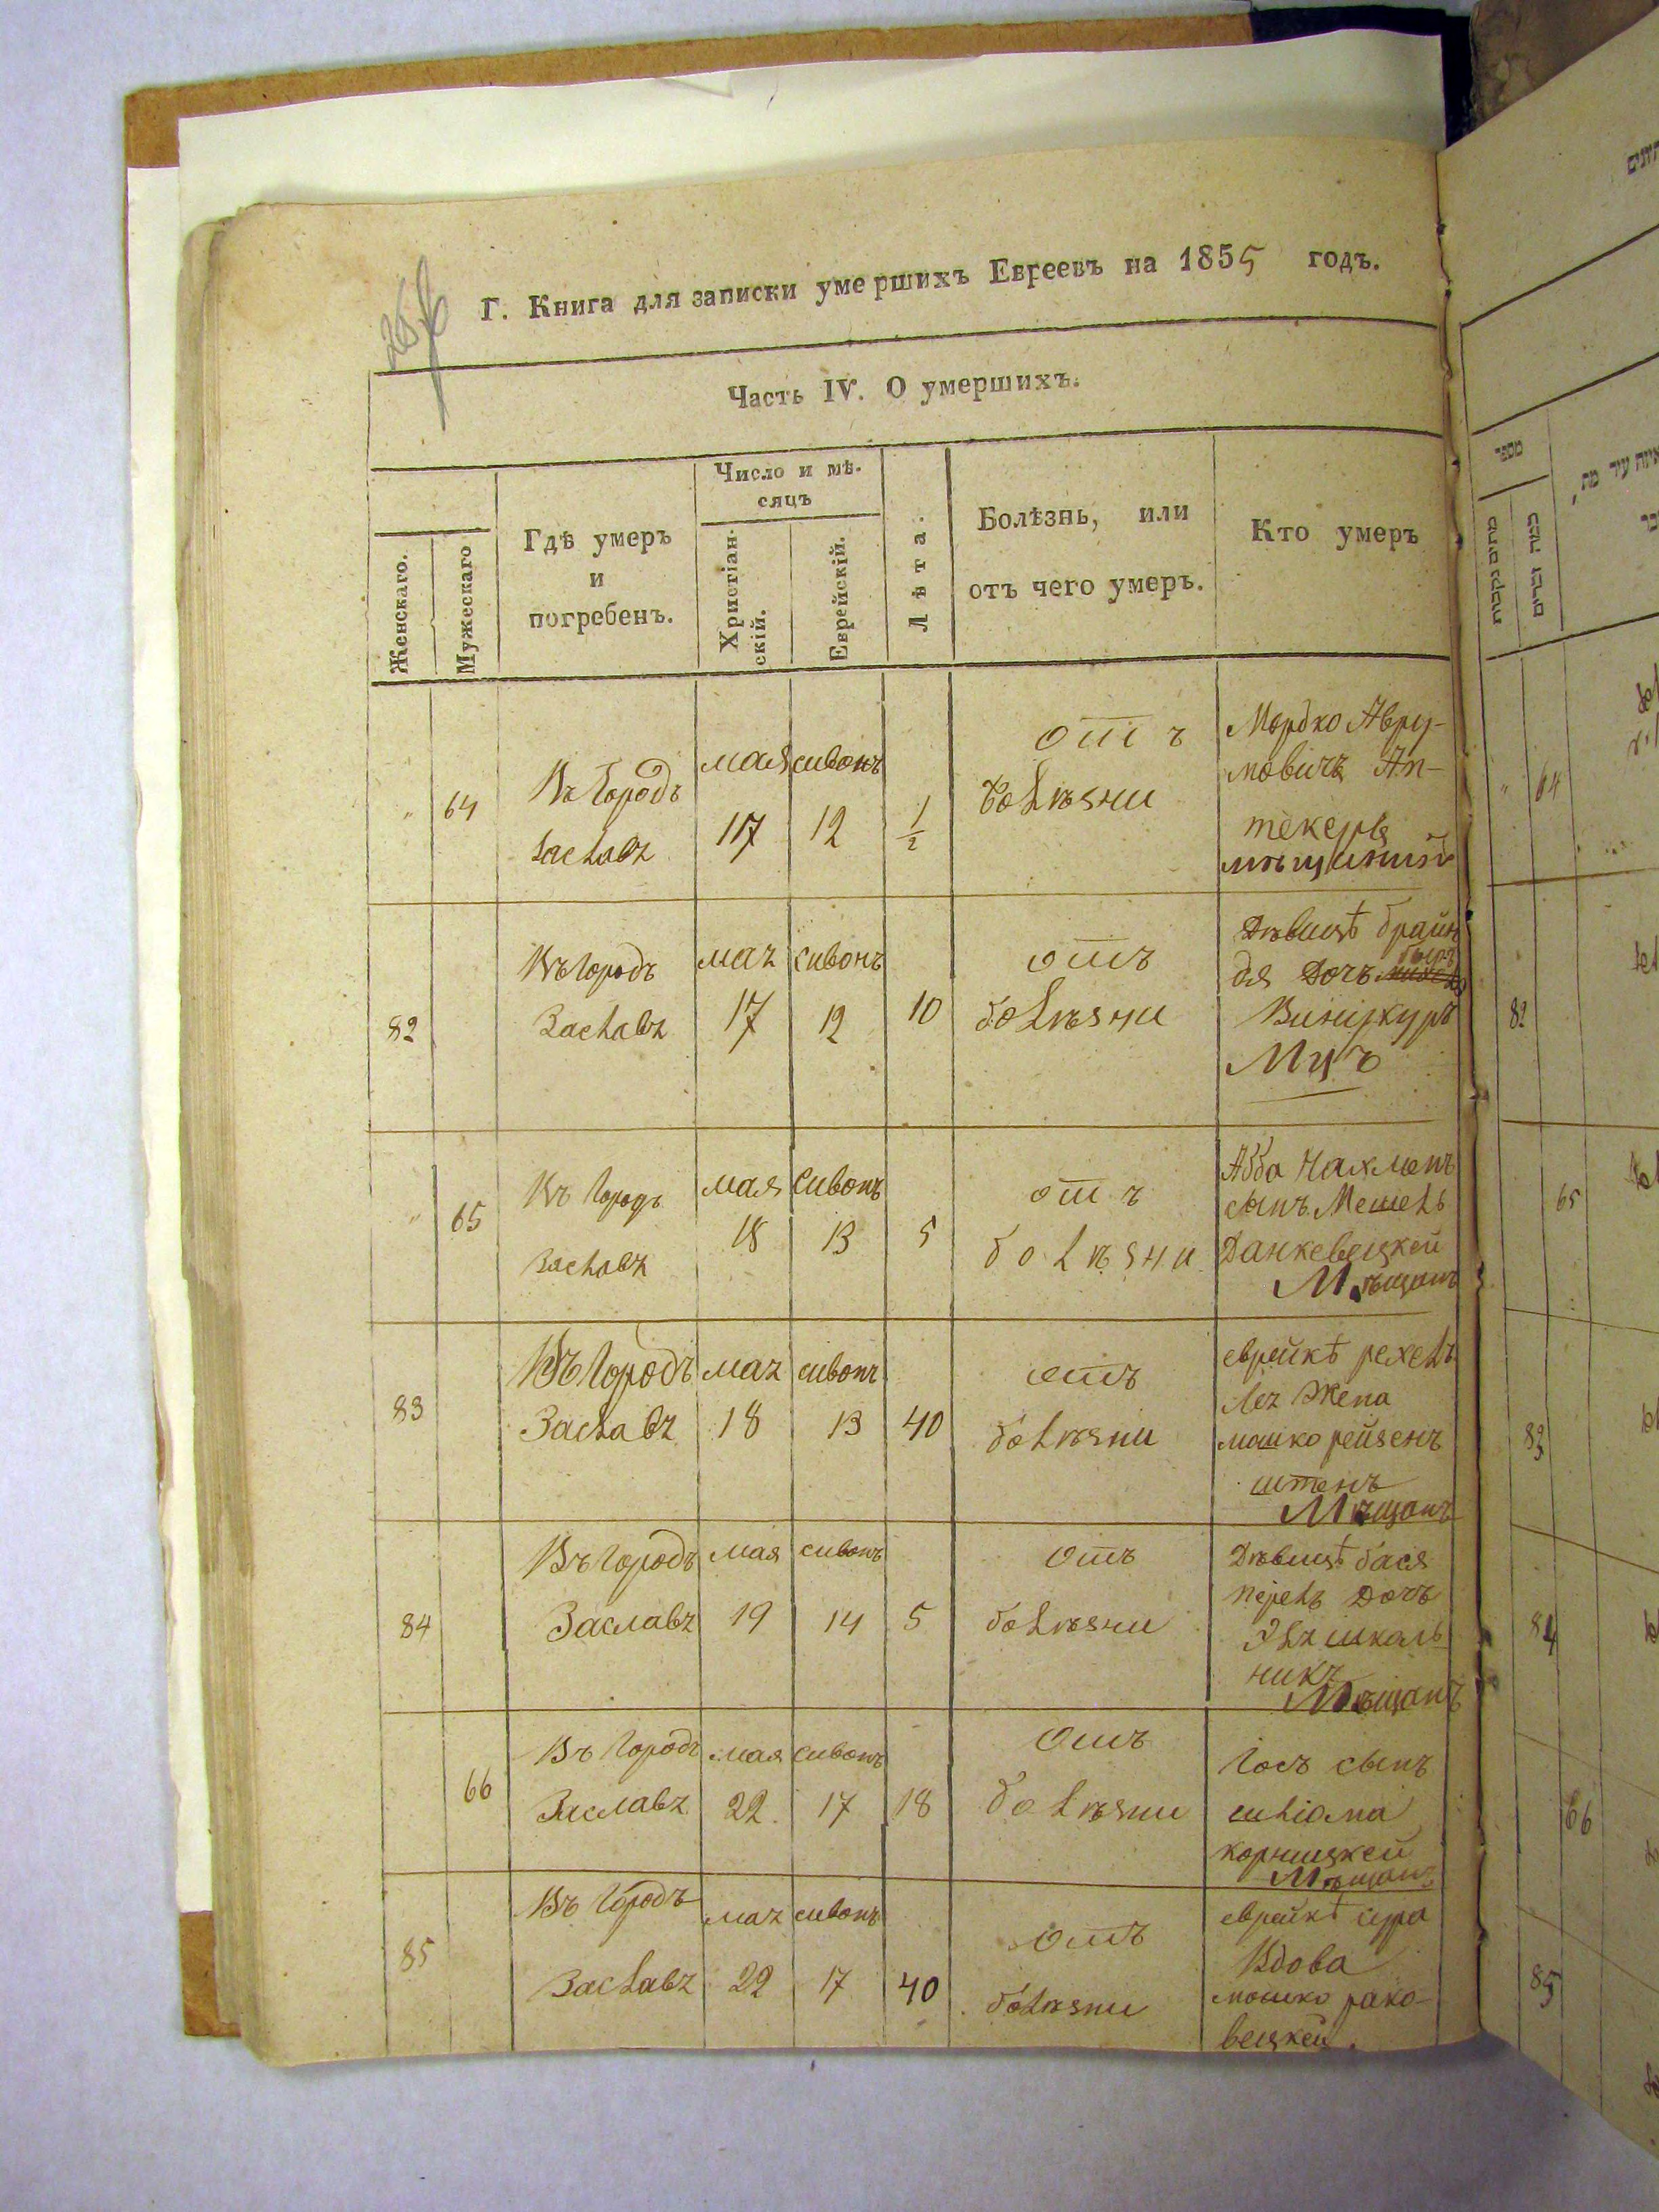 Г. Книга для записки умершихъ Евреевъ на 1855 годъ.
Часть IV. О умершихъ.
Женскаго.
Мужескаго
Гдѣ умеръ
и
погребенъ.
Число и мѣ-
сяцъ
Христіан-
скій.
Еврейскій.
Лѣта.
Болѣзнь, или
отъ чего умеръ.
Кто умеръ
" 64
Въ Городъ
Заславъ
мая
17
сивонъ
12
1/2
отъ
болѣзни
Мордко Авру-
мовичъ Ап-
текеръ
82
Въ Городъ
Заславъ
маъ
17
сивонъ
12
10
отъ
болѣзни
Дѣвицѣ брайн
дя Дочъ
Винцкуръ
Мцъ
" 65
Въ Городъ
Заславъ
мая
18
Сивонъ
13
5
отъ
болѣзни
Абба Нахменъ
сынъ Мешель
Данкевецкей
Мѣщанъ
83
Въ Городъ
Заславъ
маъ
18
сивонъ
13
40
отъ
болѣзни
еврейкѣ рехель
леъ Жена
машко рейзенъ
штенъ
Мѣщанъ
84
Въ Городъ
Заславъ
мая
19
сивонъ
14
5
отъ
болѣзни
Дѣвицѣ бася
перель Дочъ
школь
никъ
Мѣщанъ
66
Въ Городъ
Заславъ
мая
22
сивонъ
17
18
отъ
болѣзни
Іосъ сынъ
шліома
корницкей
Мѣщанъ
85
Въ Городъ
Заславъ
маъ
22
сивонъ
17
40
отъ
болѣзни
еврейкѣ сура
Вдова
мошко рако-
вецкей.
מספר
64
82
65
83
84
66
85